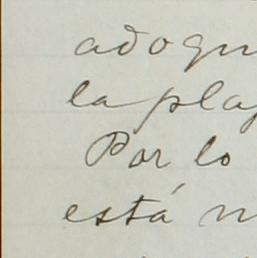 adoqu
la pla
Por lo
está